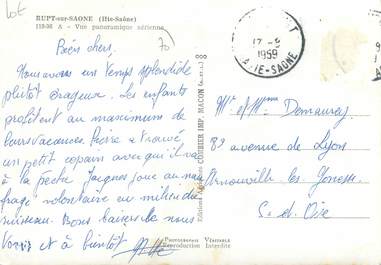 Lot
RUPT-sur-SAONE (Hte-Saône)
113-36 A - Vue panoramique aérienne
70
Biens chers.
Nous avons un temps splendide
plutôt orageux. Les enfants
profitent au maximum de
leurs vacances. Pierre a trouvé
un petit copain avec qui il va
à la pêche. Jacques joue au nau
frage volontaire au milieu du
ruisseau. Bons baisers de nous
tous et à bientôt
Editions Aériennes COMBIER IMP. MACON (S.-et-L.)
Photographie Véritable
Reproduction Interdite
17-8
1959
HTE-SAONE
Mr et Mme Demaurey
89 avenue de Lyon
Arnouville les Gonesse
S. et Oise